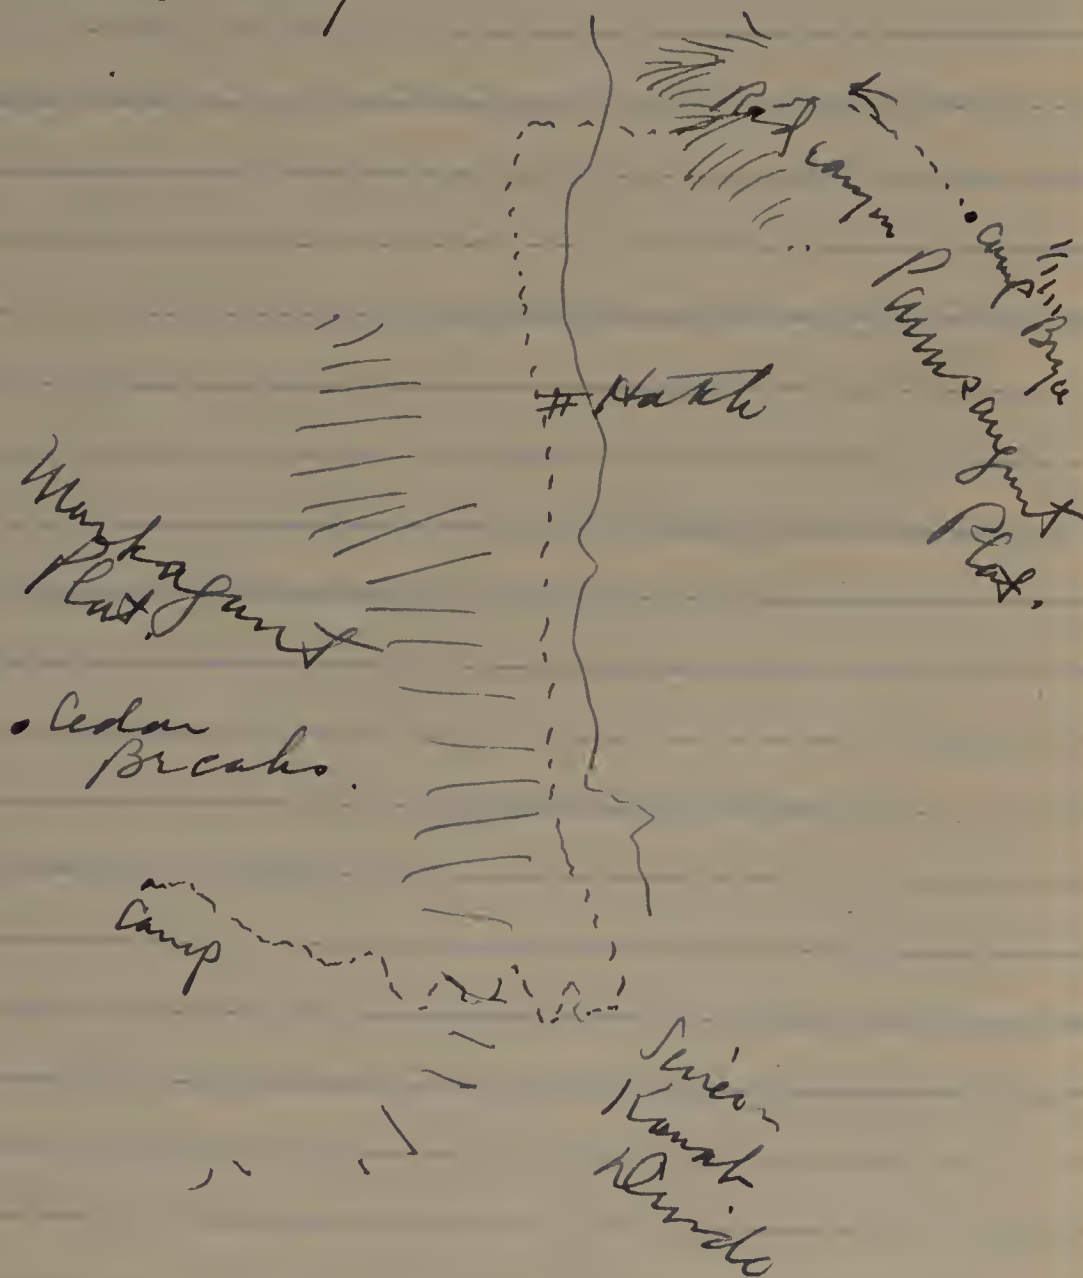 Red Canyon
Camp
Bryce
Paunsaugunt
Plat.
Hatch
Markagunt
Plat.
Cedar
Breaks.
Camp
Sevier
Kanab
Divide